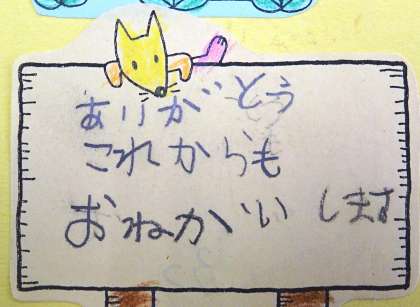 ありがとう
これからも
おねがいします